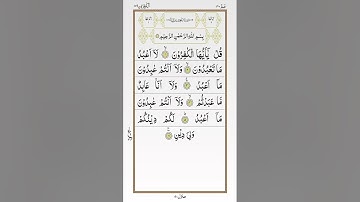 بِسْمِ اللّٰهِ الرَّحْمٰنِ الرَّحِيْمِ
قُلْ يٰٓاَيُّهَا الْكٰفِرُوْنَ ۙ لَاۤ اَعْبُدُ
مَا تَعْبُدُوْنَ ۙ وَلَاۤ اَنْتُمْ عٰبِدُوْنَ
مَاۤ اَعْبُدُ ۚ وَلَاۤ اَنَا عَابِدٌ
مَّا عَبَدْتُّمْ ۙ وَلَاۤ اَنْتُمْ عٰبِدُوْنَ
مَاۤ اَعْبُدُ ؕ لَكُمْ دِيْنُكُمْ
وَلِيَ دِيْنِ